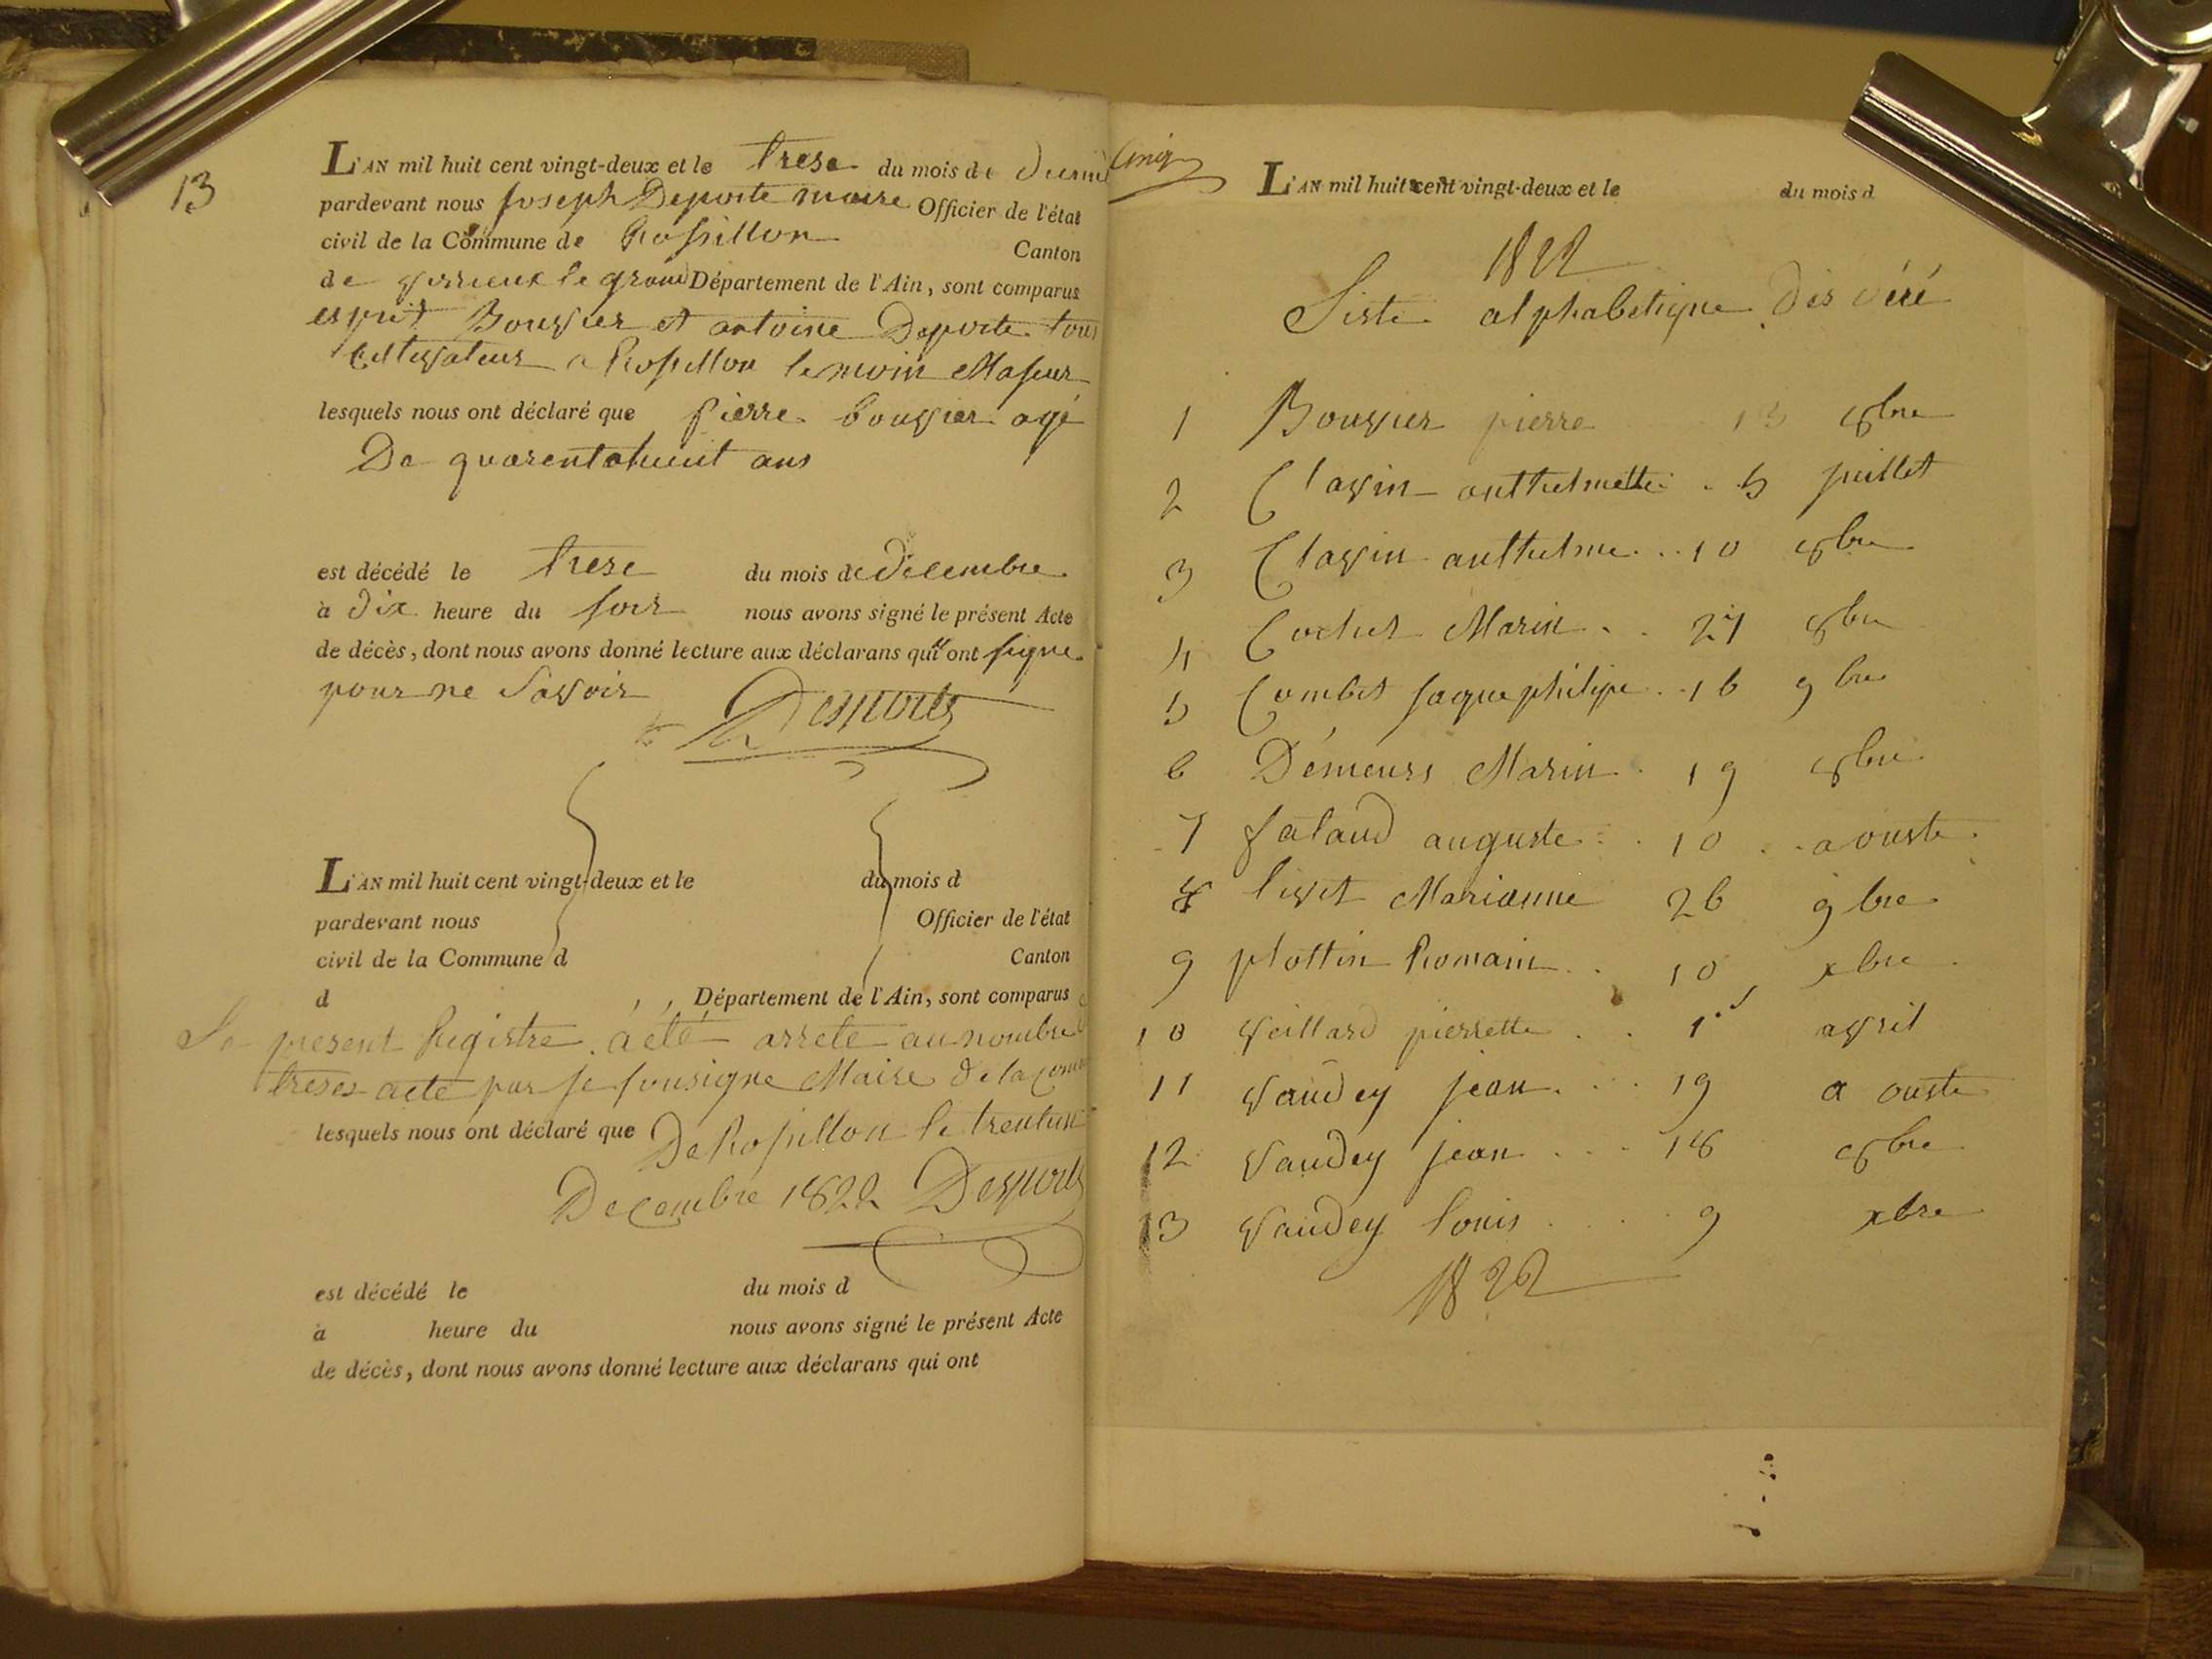 13
L'AN mil huit cent vingt-deux et le trese du mois de
pardevant nous joseph Deporte maire Officier de l'état
civil de la Commune de Rossillon Canton
de virieux le grand Département de l'Ain, sont comparus
esprit Bouvier et antoine Deporte tous
Cultivateur a Rossillon temoin Majeur
lesquels nous ont déclaré que pierre bouvier agé
De quarentahuit ans
est décédé le trese du mois de decembre
à dix heure du soir nous avons signé le présent Acte
de décès, dont nous avons donné lecture aux déclarans qui ont signe
pour ne Savoir Deporte
L'AN mil huit cent vingt-deux et le du mois d
pardevant nous Officier de l'état
civil de la Commune d Canton
d Département de l'Ain, sont comparus
Le present Registre a été arrete au nombre
treses acte par je sousigne Maire de la
lesquels nous ont déclaré que De Rossillon le trentun
Decembre 1822 Deporte
est décédé le du mois d
à heure du nous avons signé le présent Acte
de décès, dont nous avons donné lecture aux déclarans qui ont
L'AN mil huit cent vingt-deux et le du mois d
1822
Liste alphabetique des
1 Bouvier pierre 13 8bre
2 Clavin anthelmette 5 juillet
3 Clavin anthelme 10 8bre
4 Cochet Marin 27 8bre
5 Combet jaque philipe 16 9bre
6 Demeurs Marin 19 8bre
7 falaud auguste 10 aouste
8 livet Marianne 26 9bre
9 plottin Romain 10 xbre
10 Veillard pierrette 1er avril
11 Vaudey jean 19 aouste
12 Vaudey jean 18 8bre
13 Vaudey louis 9 xbre
1822